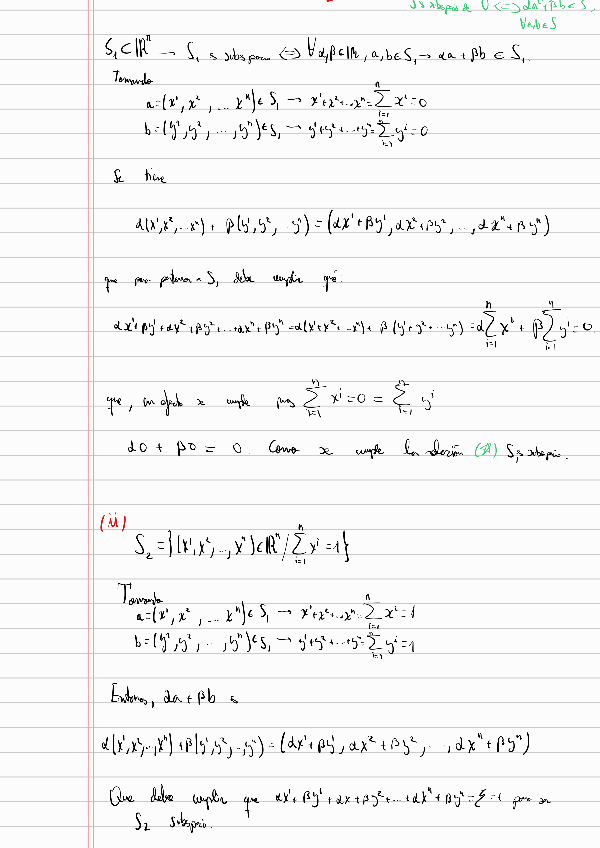 S subespacio de U ⟺ αa+βb ∈ S,
∀a,b∈S
S₁⊂ℝⁿ → S₁ es subespacio ⟺ ∀α,β∈ℝ, a,b∈S₁ → αa + βb ∈ S₁.
Tomando
a=(x¹, x², ... xⁿ)∈ S₁ → x¹+x²+...xⁿ=∑ᵢ₌₁ⁿ xⁱ=0
b=(y¹, y², ..., yⁿ)∈S₁ → y¹+y²+...+yⁿ=∑ᵢ₌₁ⁿ yⁱ=0
Se tiene
α(x¹,x²,...xⁿ) + β(y¹,y²,...yⁿ)=(αx¹+βy¹, αx²+βy²,..., αxⁿ+βyⁿ)
que para pertenecer a S₁ debe cumplir que:
αx¹+βy¹+αx²+βy²+...+αxⁿ+βyⁿ=α(x¹+x²+...xⁿ)+ β(y¹+y²+...yⁿ)=α∑ᵢ₌₁ⁿ xⁱ + β∑ᵢ₌₁ⁿ yⁱ=0
que, en efecto se cumple pues ∑ᵢ₌₁ⁿ xⁱ=0 = ∑ᵢ₌₁ⁿ yⁱ
α0 + β0 = 0. Como se cumple la S₁ es subespacio.
(ii)
S₂={(x¹,x²,...,xⁿ)∈ℝⁿ/∑ᵢ₌₁ⁿ xⁱ=1}
Tomando
a=(x¹, x², ... xⁿ)∈ S₁ → x¹+x²+...xⁿ=∑ᵢ₌₁ⁿ xⁱ=1
b=(y¹, y², ..., yⁿ)∈S₁ → y¹+y²+...+yⁿ=∑ᵢ₌₁ⁿ yⁱ=1
Entonces, αa + βb es
α(x¹,x²,...,xⁿ)+β(y¹,y²,...,yⁿ)=(αx¹+βy¹, αx²+βy², ..., αxⁿ+βyⁿ)
Que debe cumplir que αx¹+βy¹+αx+βy²+...+αxⁿ+βyⁿ= =1 para ser
S₂ subespacio.